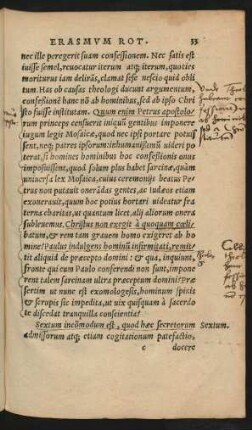 ERASMVM ROT. 33
nec ille peregerit suam confessionem. Nec satis est
fuisse semel, reuocatur iterum atq; iterum, quoties
moriturus iam deliras, clamat sese nescio quid obli
tum. Has ob causas theologi ducunt argumentum,
confessionē hanc nō ab hominibus, sed ab ipso Chri
sto fuisse institutam. Quum enim Petrus apostolo/
rum princeps censuerit cuiquā gentibus imponere
iugum legis Mosaicæ, quod nec ipsi portare potuis
sent, neq; patres ipsorum: inhumanissimū uideri po
terat, si homines hominibus hoc confessionis onus
imposuissent, quod solum plus habet sarcinæ, quàm
uniuersa lex Mosaica, cuius ceremonijs beatus Pe
trus non putauit onerādas gentes, ac iudæos etiam
exonerauit, quum hoc potius hortari uideatur fra
terna charitas, ut quantum licet, alij aliorum onera
subleuemus. Christus non exegit à quoquam cœli/
batum, & rem tam grauem homo exigeret ab ho
mine? Paulus indulgens hominū infirmitati, remit/
tit aliquid de præcepto domini: & qua, inquiunt,
fronte qui cum Paulo conferendi non sunt, impone
rent talem sarcinam ultra præceptum domini? Præ
sertim ut nunc est exomologesis, hominum spinis
& scrupis sic impedita, ut uix quisquam à sacerdo
te discedat tranquilla conscientia?
Sextum incōmodum est, quod hæc secretorum Sextum.
admissorum atq; etiam cogitationum patefactio,
e docere